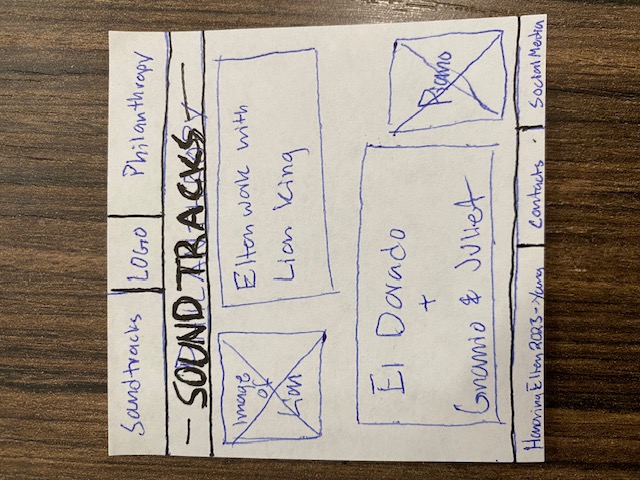 Soundtracks
LOGO
Philanthropy
- SOUNDTRACKS -
Image
of
Lion
Elton work with
Lion King
El Dorado
+
Gnomio & Juliet
Piano
Honoring Elton 2023 - Yang
Contacts
Social Media